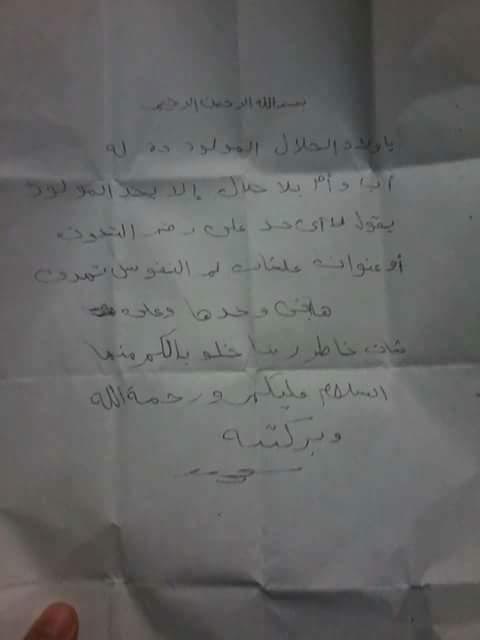 بسم الله الرحمن الرحيم
يا ولاد الحلال المولود ده له
أبا و أم بلا حلال إلا يجد المولود
يقول لا أى حد على رقم التلفون
أو عنوانه علشان لم النفوس تهدى
هاجى وخدها وعلى
شان خاطر ربنا خلو بالكم منها
السلام عليكم ورحمة الله
وبركته